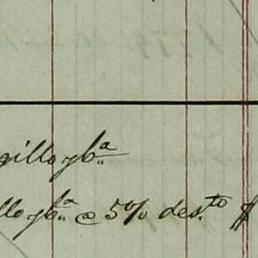 gillo y Ca.
llo y Ca. @ 5% des.to $